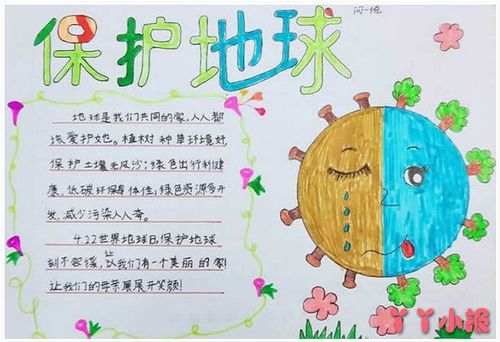 保护地球
闫一统
地球是我们共同的家,人人都
该爱护她。植树种草环境好,
保护土壤无风沙;绿色出行利健
康,低碳环保事体佳;绿色资源多开
发,减少污染人人夸。
4.22世界地球日,保护地球
刻不容缓,让以我们有一个美丽的家!
让我们的母亲展展开笑颜!
丫丫小报